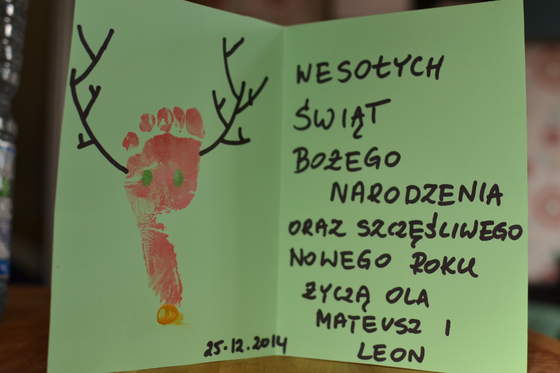 25.12.2014
WESOŁYCH
ŚWIĄT
BOŻEGO
NARODZENIA
ORAZ SZCZĘŚLIWEGO
NOWEGO ROKU
ŻYCZĄ OLA
MATEUSZ I
LEON